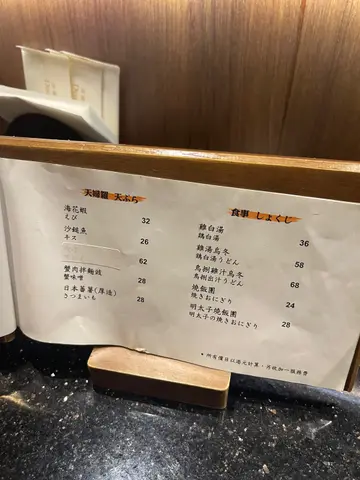 天婦羅 天ぷら
海花蝦
えび 32
沙鎚魚
キス 26
62
蟹肉拌麵豉
蟹味噌 28
日本蕃薯(厚造)
さつまいも 28
食事 しょくじ
雞白湯
鶏白湯 36
雞湯烏冬
鶏白湯うどん 58
鳥捌雞汁烏冬
鳥捌出汁うどん 68
燒飯團
焼きおにぎり 24
明太子燒飯團
明太子の焼きおにぎり 28
• 所有價目以港元計算，另收加一服務費